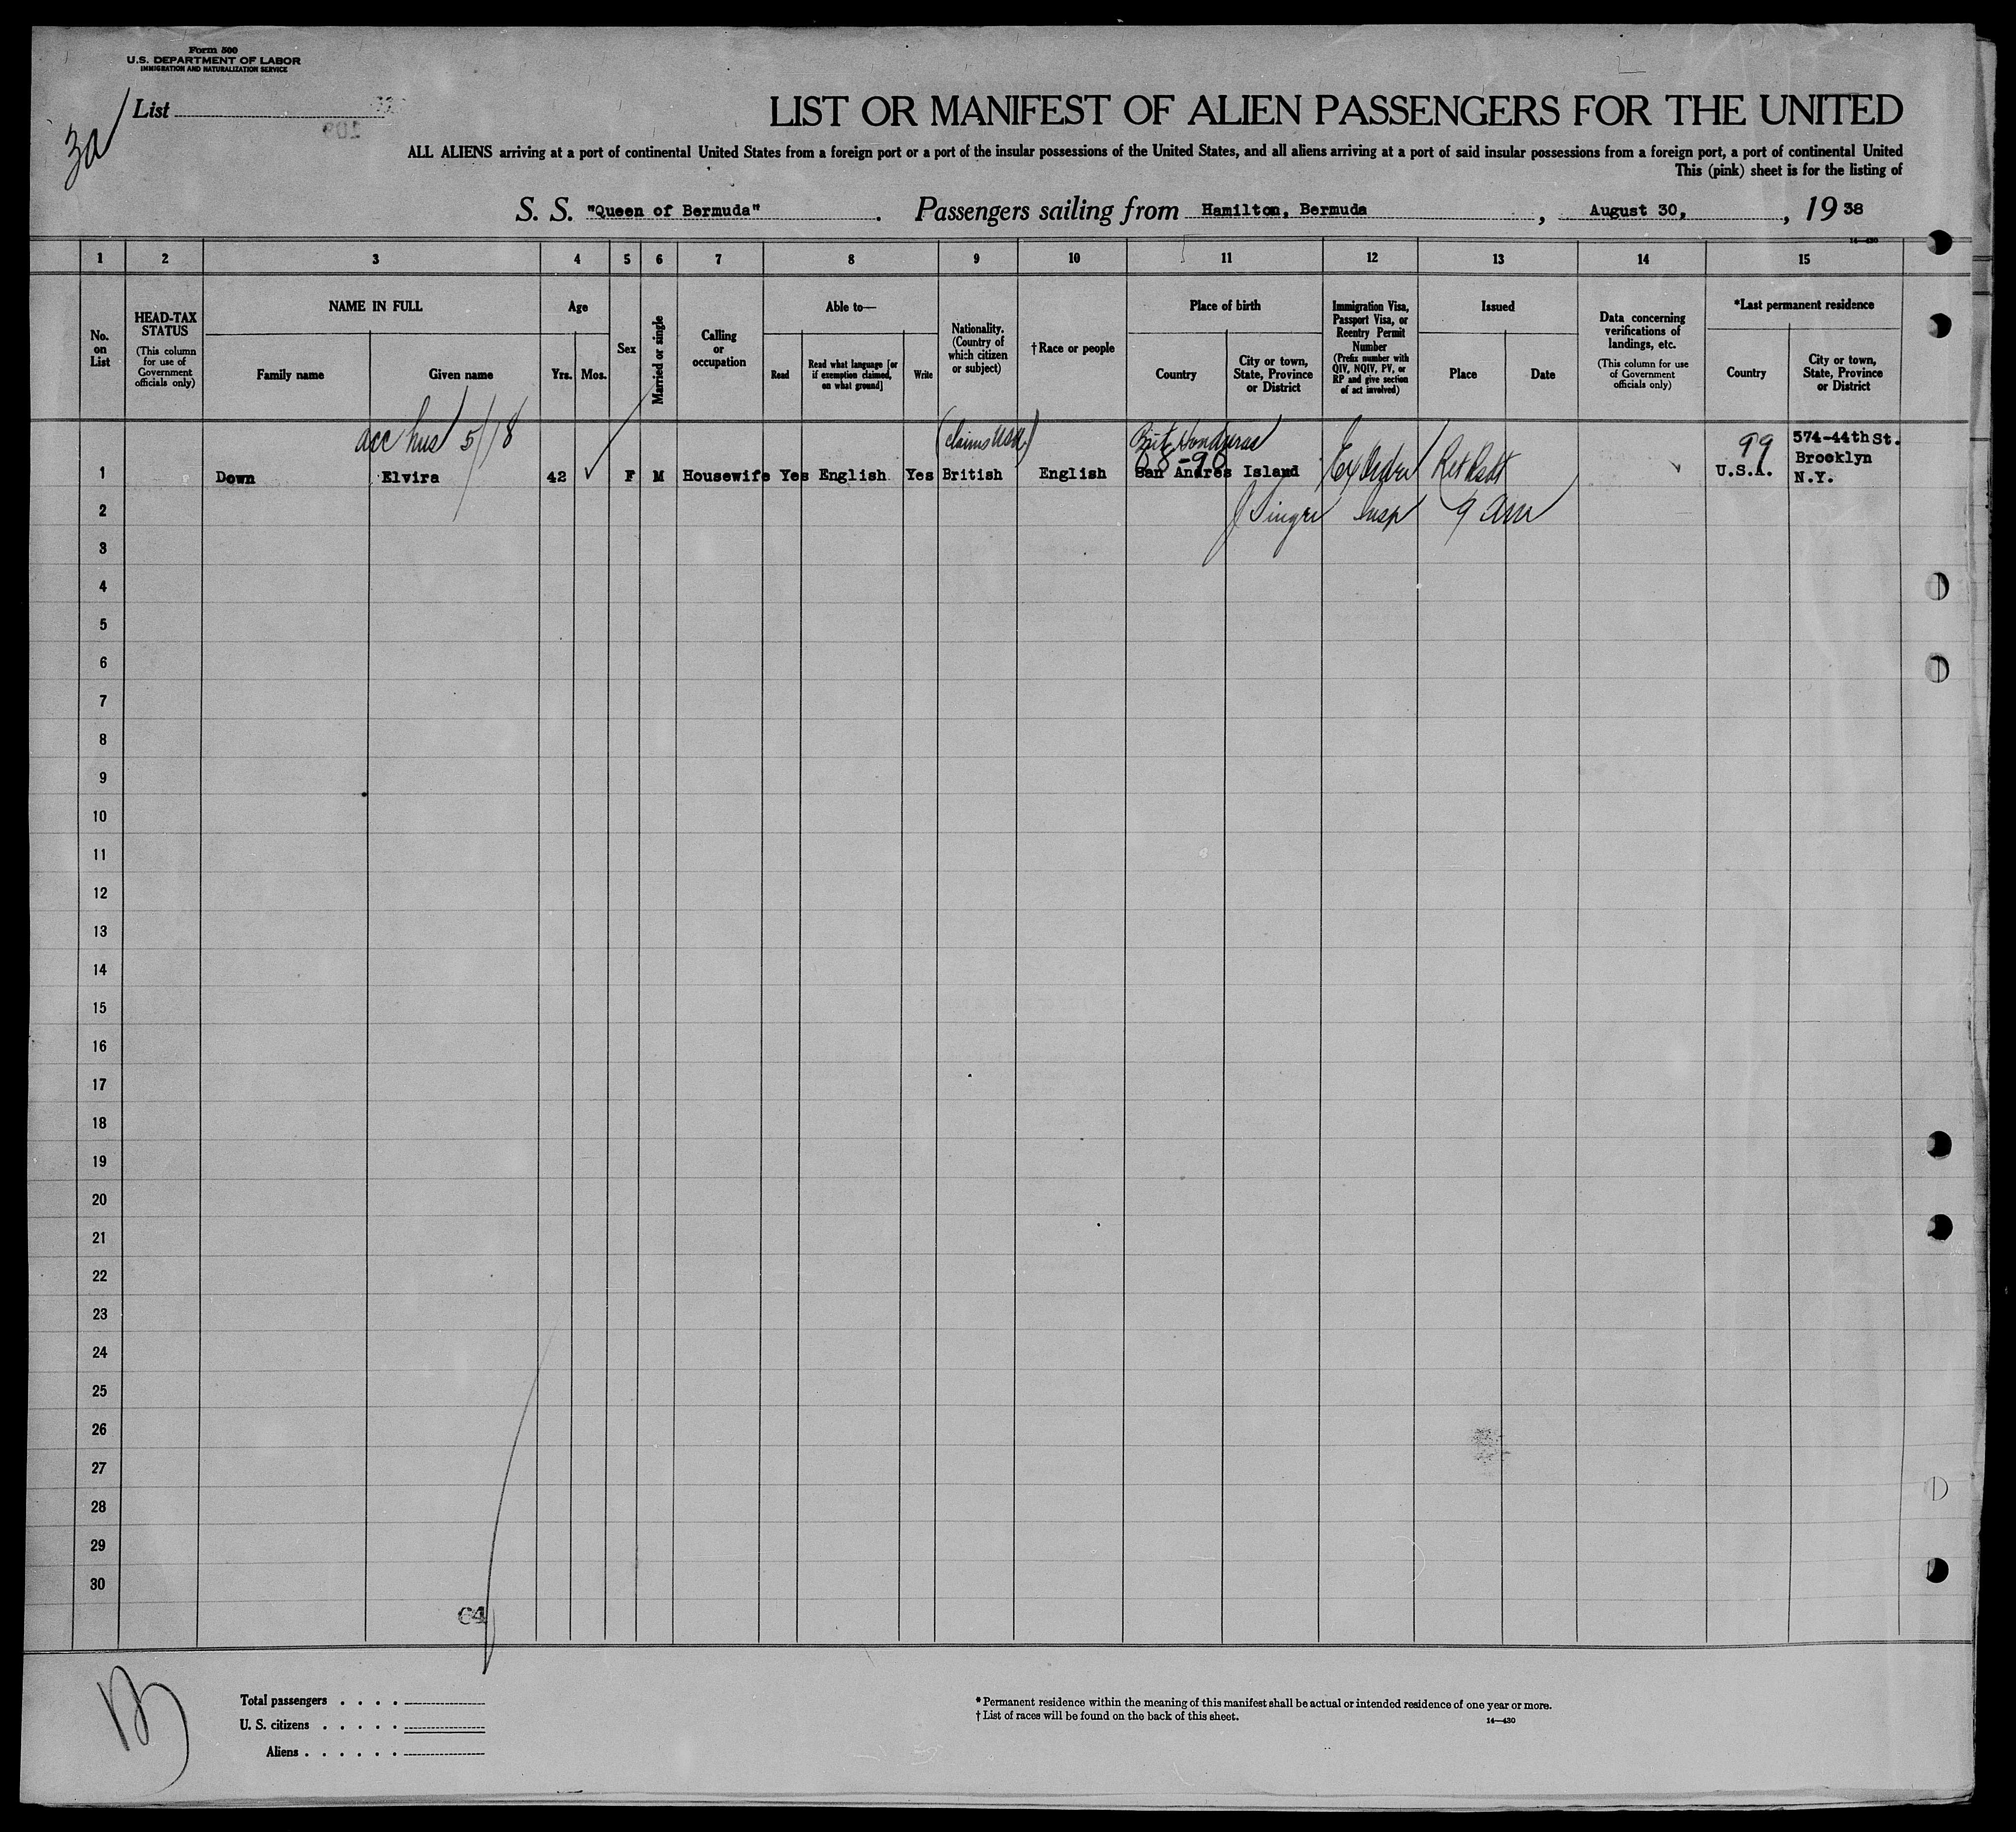 Form 500
U.S. DEPARTMENT OF LABOR
IMMIGRATION AND NATURALIZATION SERVICE
3a
List
LIST OR MANIFEST OF ALIEN PASSENGERS FOR THE UNITED
ALL ALIENS arriving at a port of continental United States from a foreign port or a port of the insular possessions of the United States, and all aliens arriving at a port of said insular possessions from a foreign port, a port of continental United
This (pink) sheet is for the listing of
S. S. "Queen of Bermuda". Passengers sailing from Hamilton, Bermuda, August 30,, 1938
14—430
1 2 3 4 5 6 7 8 9 10 11 12 13 14 15
No. on List
HEAD-TAX STATUS
(This column for use of Government officials only)
NAME IN FULL
Family name
Given name
Age
Yrs. Mos.
Sex
Married or single
Calling or occupation
Able to—
Read
Read what language [or if exemption claimed, on what ground]
Write
Nationality. (Country of which citizen or subject)
†Race or people
Place of birth
Country
City or town, State, Province or District
Immigration Visa, Passport Visa, or Reentry Permit Number
(Prefix number with QIV, NQIV, PV, or RP and give section of act involved)
Issued
Place
Date
Data concerning verifications of landings, etc.
(This column for use of Government officials only)
*Last permanent residence
Country
City or town, State, Province or District
acc hus 5/18
(claims USA)
Brit Honduras
99
574-44th St.
Brooklyn
N.Y.
1 Down Elvira 42 ✓ F M Housewife Yes English Yes British English San Andres Island U.S.A.
2
Insp 9 am
3
4
5
6
7
8
9
10
11
12
13
14
15
16
17
18
19
20
21
22
23
24
25
26
27
28
29
30
64
Total passengers . . . .
U. S. citizens . . . . .
Aliens . . . . . .
*Permanent residence within the meaning of this manifest shall be actual or intended residence of one year or more.
†List of races will be found on the back of this sheet.
14—430